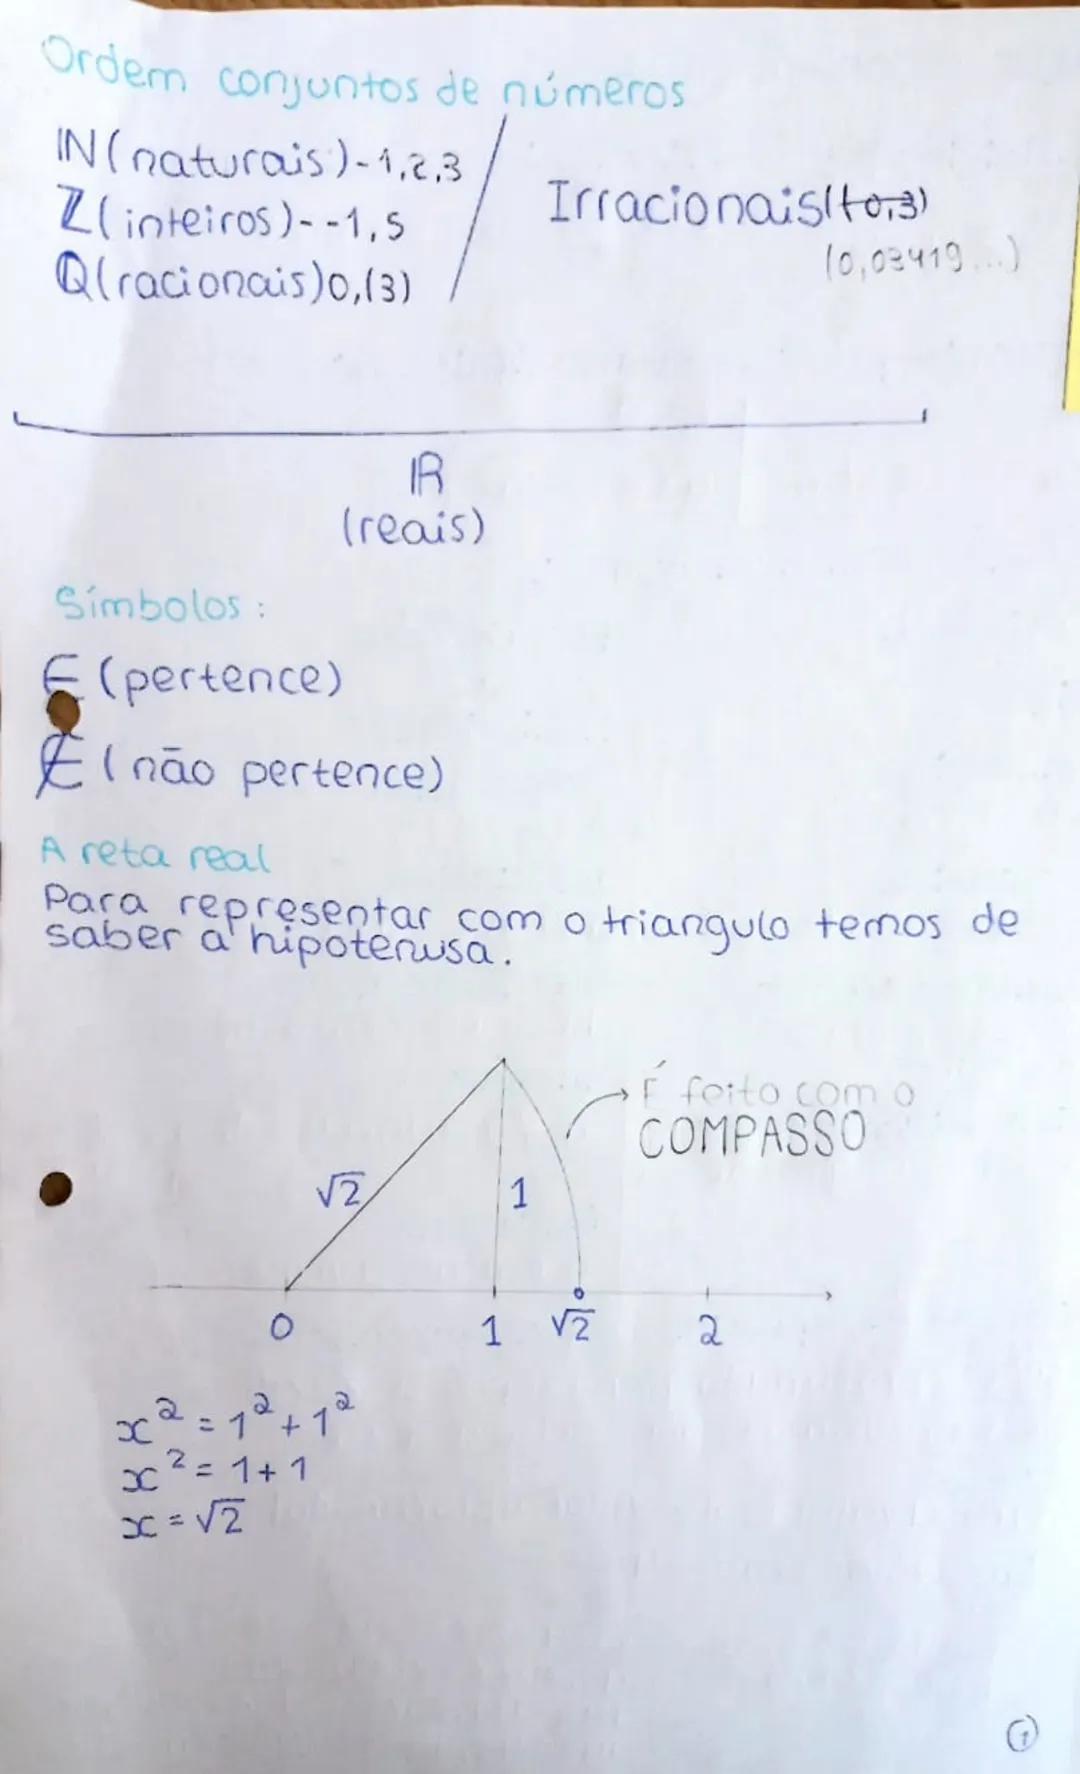 Ordem conjuntos de números
ℕ(naturais)-1,2,3
ℤ(inteiros)--1,5
ℚ(racionais)0,(3)
Irracionais(
(0,03419...)
ℝ
(reais)
Símbolos:
∈ (pertence)
∉ (não pertence)
A reta real
Para representar com o triangulo temos de
saber a hipotenusa.
É feito com o
COMPASSO
√2
1
0
1
√2
2
x² = 1² + 1²
x² = 1 + 1
x = √2
1